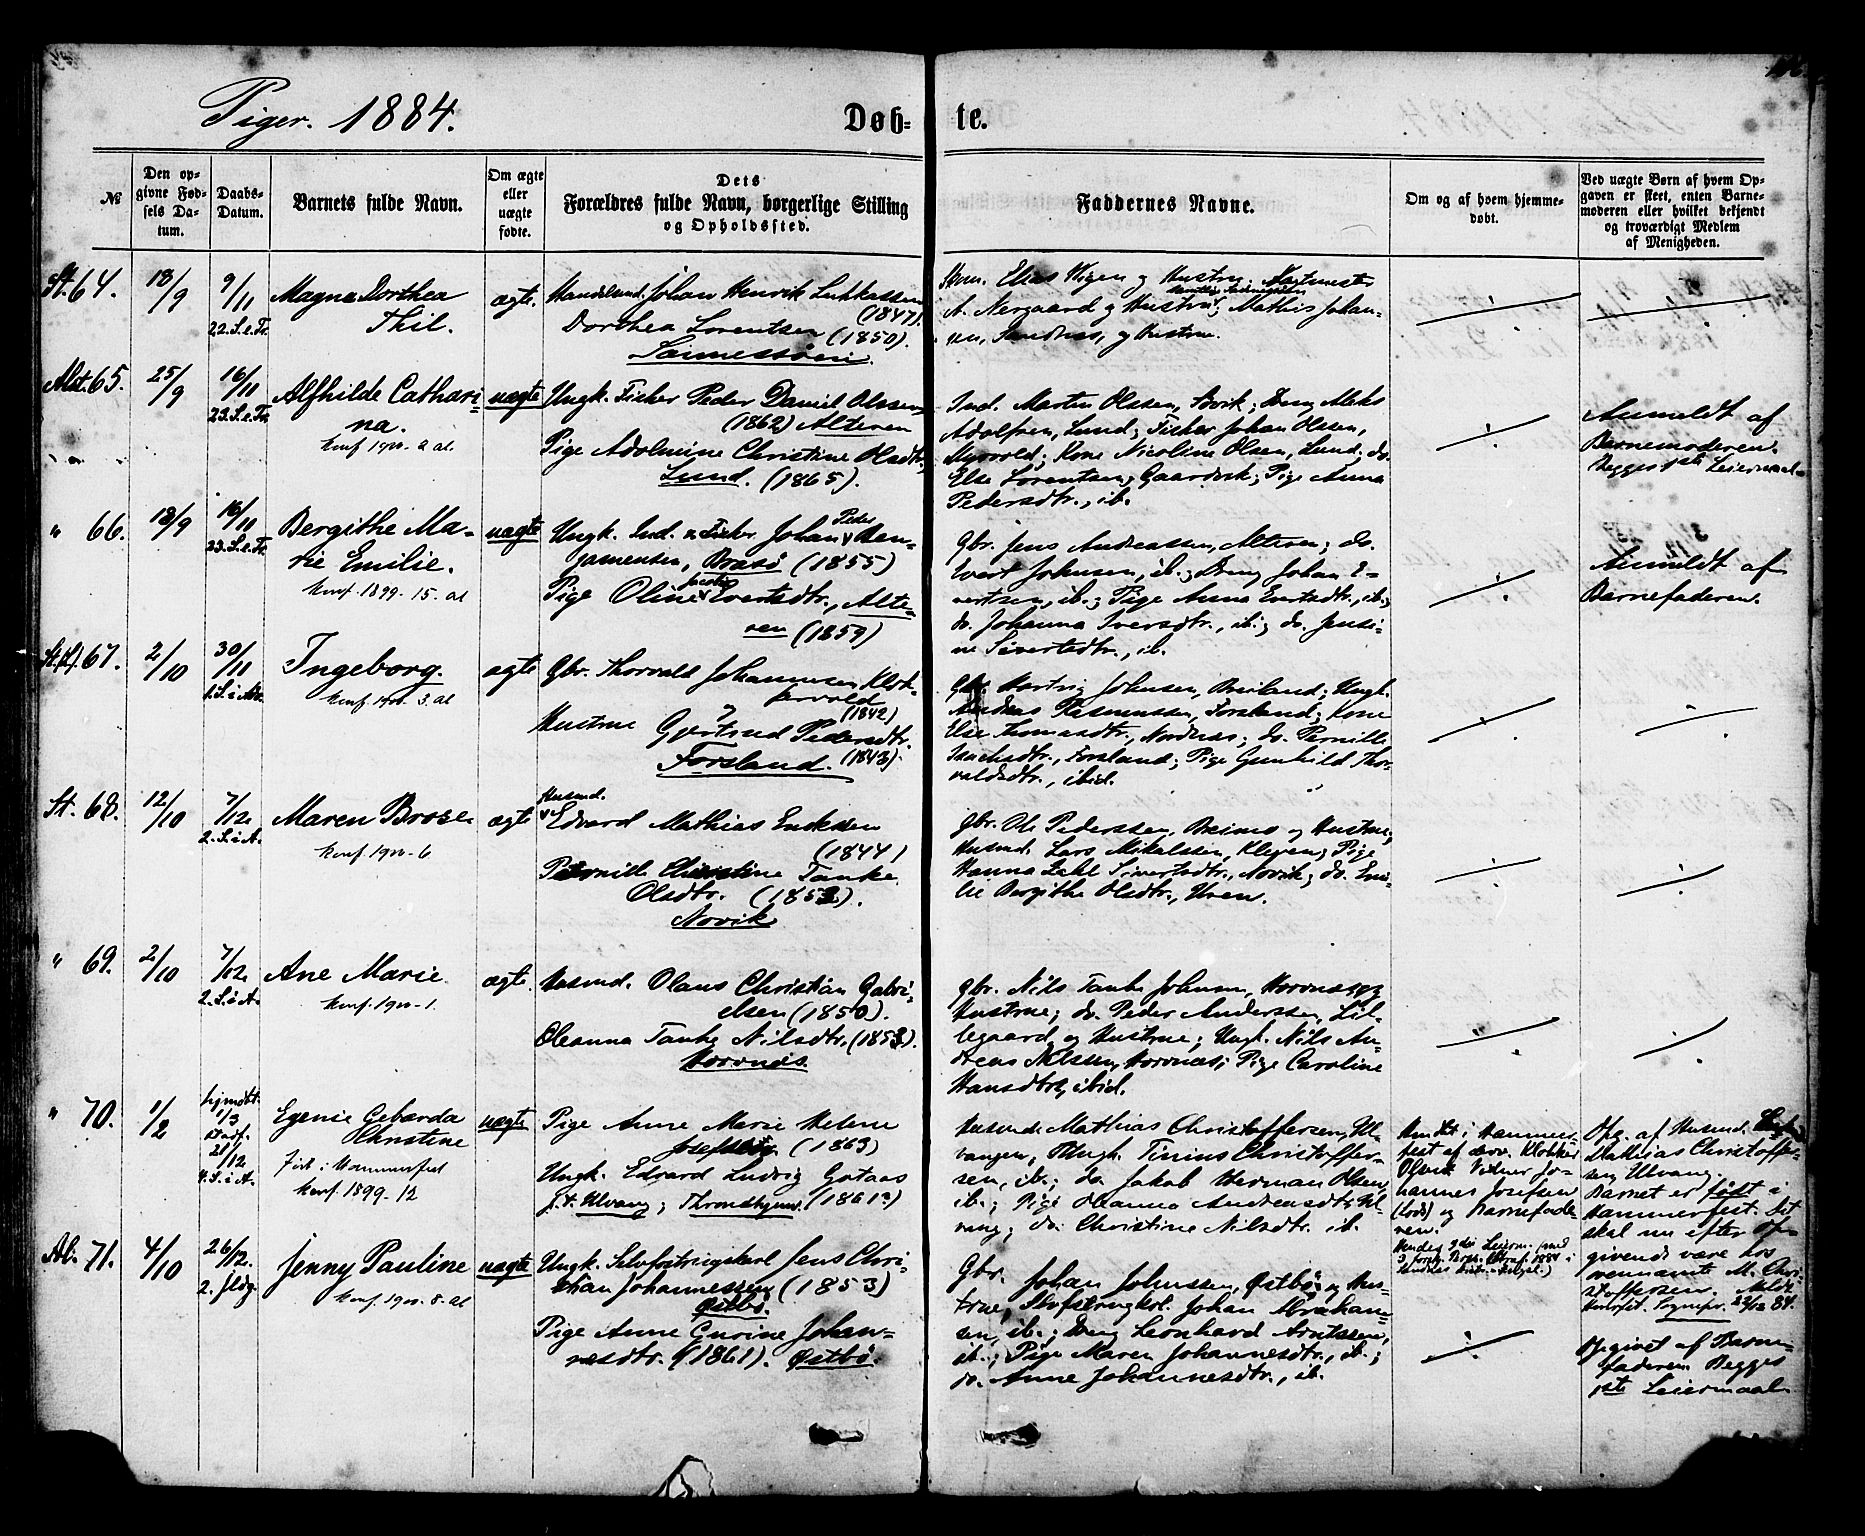 Piger. 1884.
Døb-
te.
№
Den op-
givne Fød-
sels Da-
tum.
Daabs-
Datum.
Barnets fulde Navn.
Om ægte
eller
uægte
fødte.
Dets
Forældres fulde Navn, borgerlige Stilling
og Opholdssted.
Faddernes Navne.
Om og af hvem hjemme-
døbt.
Ved uægte Børn af hvem Op-
gaven er skeet, enten Barne-
moderen eller hvilket bekjendt
og troværdigt Medlem
af Menigheden.
St. 64.
18/9
9/11
22. S. e. Tr.
Magna Dorthea
Thil.
ægte.
Handelsmd. Johan Henrik Lukkassen
(1847)
Dorthea Lorentsen (1850).
A. Nergaard og Hustru; Mathis Johan-
sen, Sandnes, og Hustru.
Alst. 65.
25/9
16/11
23. S. e. Tr.
Alfhilde Cathari-
na.
konf. 1900. 2 al
uægte
Ungk. Fisker Peder Daniel Olssen,
(1862) Alteren
Pige Adolmine Christine Olsdtr.
Lund. (1865).
Ind. Martin Olssen, Dreng
Adolfsen, Lund; Fisker Johan Olsen,
Myrvold; Kone Nicoline Olsen, Lund; do.
Else Lorentsen, Pige Anna
Pedersdtr., ib.
Anmeldt af
Barnemoderen.
Begges 1ste Leiermaal
" 66.
18/9
16/11
23. S. e. Tr.
Bergithe Ma-
rie Emilie.
konf. 1899. 15. al
uægte
Peder
Ungk. Ind. & Fisker Johan Ben-
jamensen, Brasø (1855)
Pige Oline Evertsdtr., Alte-
ren (1859)
Gbr. Jens Andreassen, Alteren; do.
Evert Johnsen, ib.; Dreng Johan E-
vertsen, ib.; Pige Anna Evertsdtr., ib.;
do. Johanna Iversdtr., ib.; do. Jensi-
ne Sivertsdtr., ib.
Anmeldt af
Barnefaderen.
67.
2/10
30/11
1. S. i Adv.
Ingeborg.
konf. 1900. 3. al
ægte
Gbr. Thorvald Johannessen Klok-
kervold
(1842)
Hustrue Gjertrud Pedersdtr.
Forsland. (1843).
Gbr. Hartvig Johnsen, Breiland; Ungk.
Andreas Rasmussen, Forsland; Kone
Else Thomasdtr., Nordnæs; do. Pernille
Isachsdtr., Forsland; Pige Gunhild Thor-
valdsdtr., ibid.
St. 68.
12/10
7/12
2. S. i A.
Maren Brose.
konf. 1900. 6
ægte
Husmd.
Edvard Mathias Eriksen
(1844)
Petronille Christine Tanke
Olsdtr. (1852).
Novik
Gbr. Ole Pederssen, Breimo og Hustrue,
Husmd. Lars Mikalssen, Kleven; Pige
Hanna Zahl Sivertsdtr., Novik; do. Emi-
lie Bergithe Olsdtr., Uren.
" 69.
2/10
7/12
2. S. i A.
Ane Marie
konf. 1900. 1.
ægte.
Husmd. Olaus Christian Gabri-
elsen (1850).
Oleanna Tanke Nilsdtr. (1853).
Hovnæs.
Gbr. Nils Tanke Johnsen, Hovnæs og
Hustrue; do. Peder Anderssen, Lil-
legaard og Hustrue; Ungk. Nils An-
dreas Nilssen, Hovnæs; Pige Caroline
Hansdtr., ibid.
" 70.
1/2
hjmdbt.
1/3
stadf.
21/12
4. S. i A.
Egenie Geharda
Christine
Født i Hammerfest
konf. 1899. 12
uægte
Pige Anne Marie Helene
Josefsdtr. (1863)
Ungk. Edvard Ludvig Gataas
f. t. Ulvang; Throndhjem. (1861?)
Husmd. Mathias Christoffersen, Ul-
vangen, Ungk. Tinius Christoffer-
sen, ib.; do. Jakob Herman Olsen
ib.; Pige Oleanna Andreasdtr. Ul-
vang; do. Christine Nilsdtr. ib.
Hmdbt. i Hammer-
fest af Klokker
Olsen Vidner Jo-
hannes Josefsen
og Barnefade-
ren.
Opg. af Husmd.
Mathias Christoffer-
sen Ulvang.
Barnet er født i
Hammerfest. Det
skal nu efter Op-
givende være hos
vennævnte M. Chri-
stoffersen.
71.
4/10
26/12.
2. Jldg.
Jenny Pauline
konf. 1900. 8. al
uægte
Ungk. Selvfostringskarl Jens Chri-
stian Johannessen (1853)
Østbø.
Pige Anne Gurine Johan-
nesdtr. (1861). Østbø.
Gbr. Johan Johnssen, Østbø, og Hus-
true, Johan Abraham-
sen, ib.; Dreng Leonhard Arntssen,
ib.; Pige Maren Johannesdtr., ib.;
do. Anne Johannesdtr., ib.
Opgivet af Barne-
faderen Begges
1ste Leiermaal